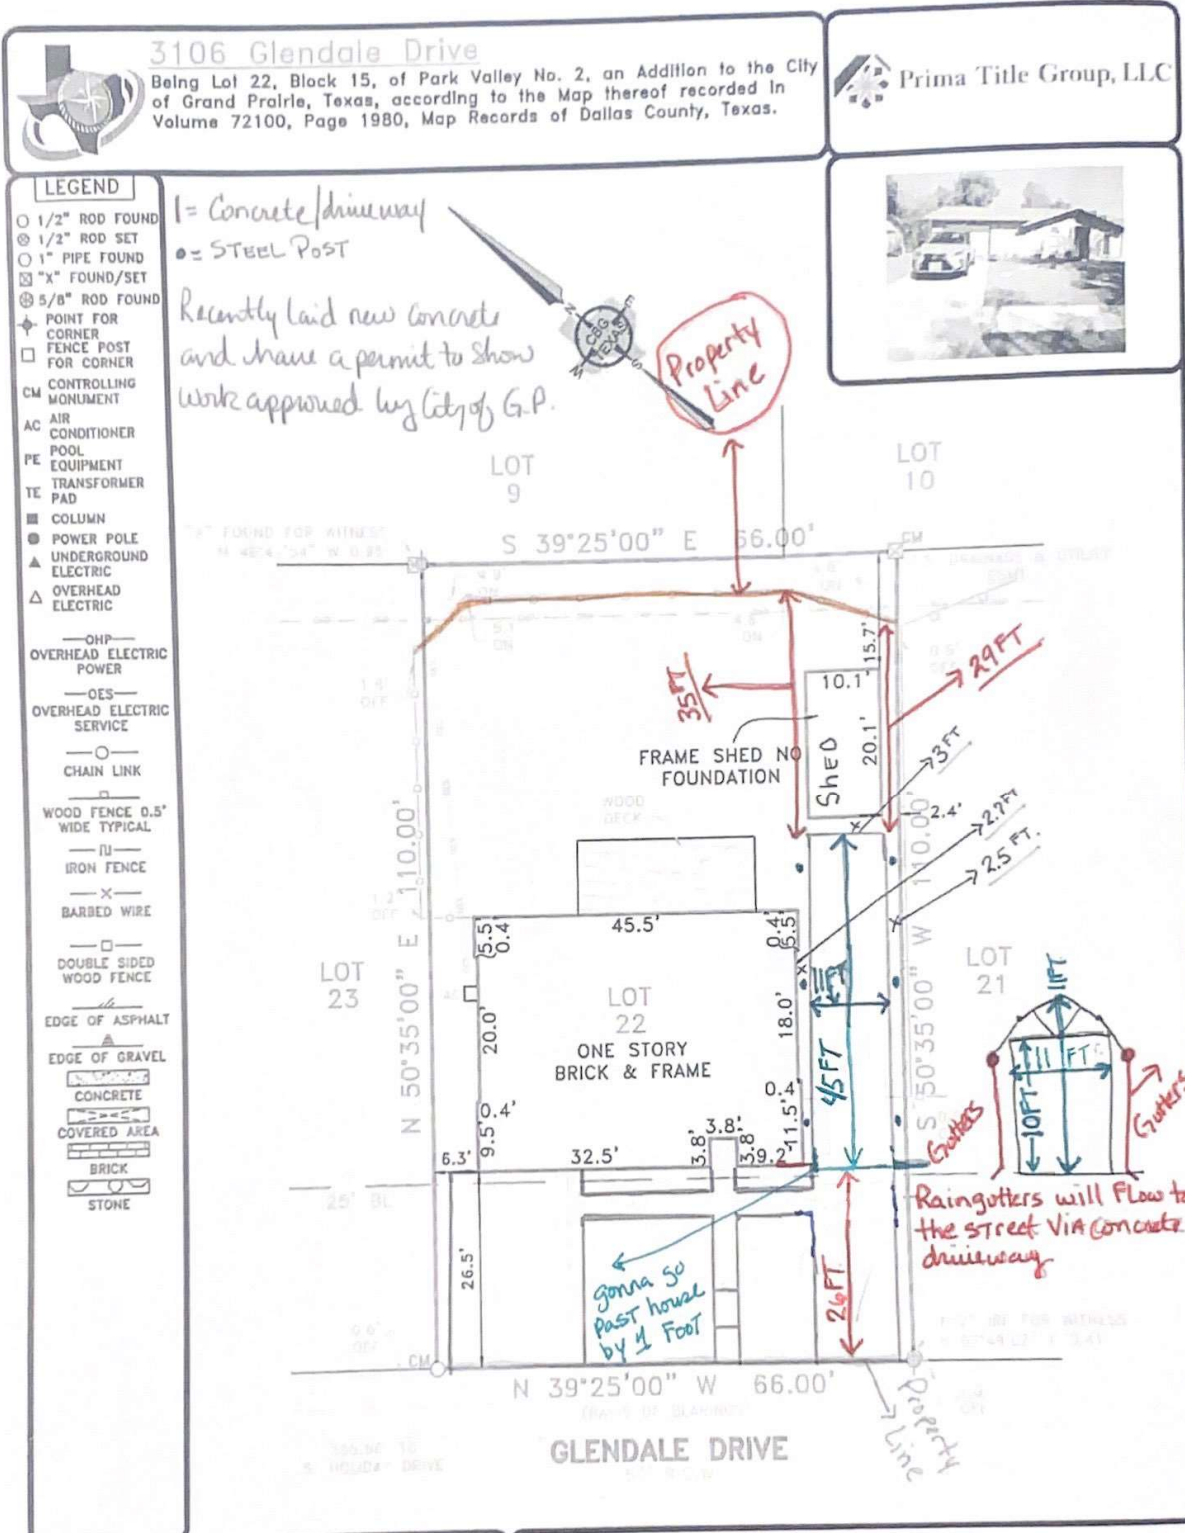 3106 Glendale Drive
Being Lot 22, Block 15, of Park Valley No. 2, an Addition to the City
of Grand Prairie, Texas, according to the Map thereof recorded in
Volume 72100, Page 1980, Map Records of Dallas County, Texas.
Prima Title Group, LLC
LEGEND
1/2" ROD FOUND
1/2" ROD SET
1" PIPE FOUND
"X" FOUND/SET
5/8" ROD FOUND
POINT FOR
CORNER
FENCE POST
FOR CORNER
CM CONTROLLING
MONUMENT
AC AIR
CONDITIONER
PE POOL
EQUIPMENT
TE TRANSFORMER
PAD
COLUMN
POWER POLE
UNDERGROUND
ELECTRIC
OVERHEAD
ELECTRIC
OHP
OVERHEAD ELECTRIC
POWER
OES
OVERHEAD ELECTRIC
SERVICE
CHAIN LINK
WOOD FENCE 0.5'
WIDE TYPICAL
IRON FENCE
BARBED WIRE
DOUBLE SIDED
WOOD FENCE
EDGE OF ASPHALT
EDGE OF GRAVEL
CONCRETE
COVERED AREA
BRICK
STONE
I = Concrete/driveway
•= STEEL POST
Recently laid new concrete
and have a permit to show
work approved by City of G.P.
N
E
S
W
CBG
TEXAS
Property
Line
LOT
9
LOT
10
"X" FOUND FOR WITNESS
S 39°25'00" E 66.00'
CM
15.7'
10.1'
20.1'
SHED
29FT
35FT
FRAME SHED NO
FOUNDATION
3FT
2.4'
2.7FT
2.5 FT.
WOOD
DECK
N 50°35'00" E 110.00'
S 50°35'00" W 110.00'
5.5'
0.4'
45.5'
0.4'
5.5'
LOT
23
LOT
22
ONE STORY
BRICK & FRAME
LOT
21
20.0'
18.0'
11 FT
45FT
0.4'
9.5'
0.4'
11.5'
6.3'
32.5'
3.8'
3.8'
3.8
9.2'
1FT
11 FT
10FT
Gutters
Gutters
Raingutters will Flow to
the street VIA concrete
driveway
25' BL
26.5'
26FT.
gonna go
Past house
by 1 Foot
CM
N 39°25'00" W 66.00'
Property
Line
GLENDALE DRIVE